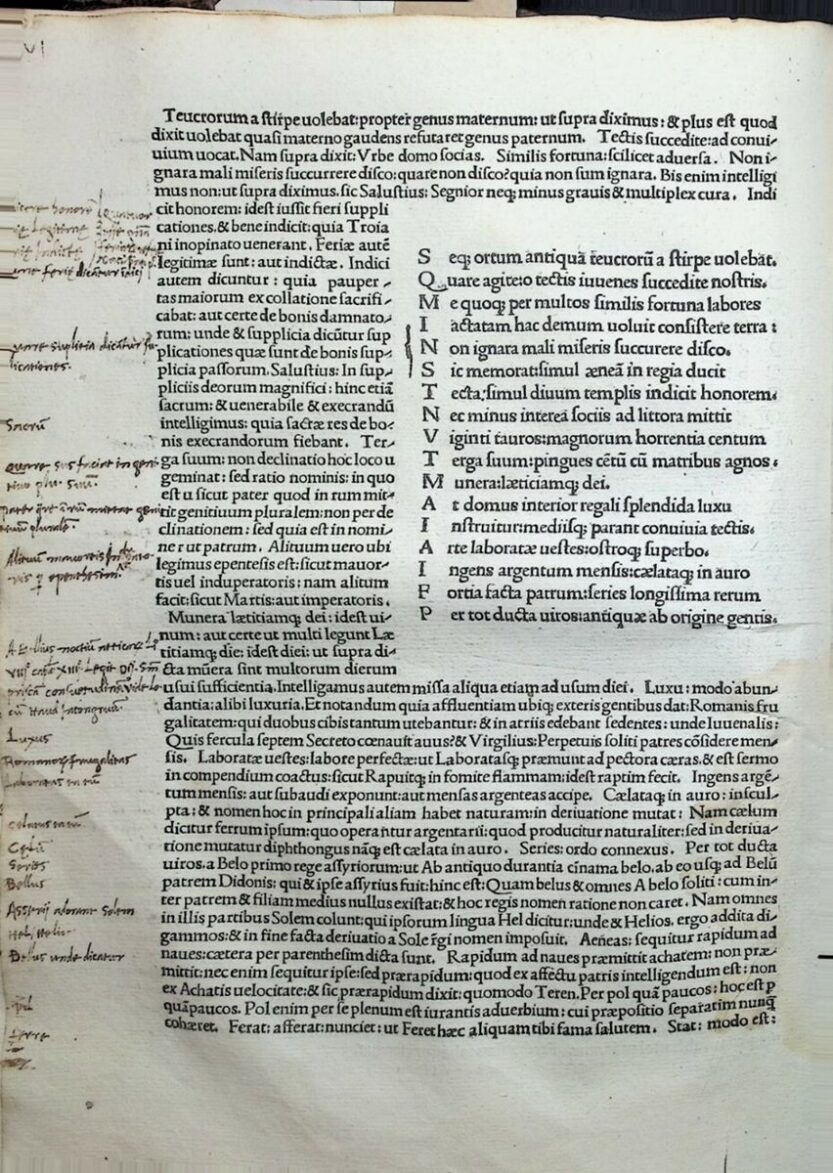 VI
Teucrorum a stirpe uolebat: propter genus maternum: ut supra diximus: & plus est quod
dixit uolebat quasi materno gaudens refutaret genus paternum. Tectis succedite: ad conui-
uium uocat. Nam supra dixit: Vrbe domo socias. Similis fortuna: scilicet aduersa. Non i-
gnara mali miseris succurrere disco: quare non disco? quia non sum ignara. Bis enim intelligi
mus non: ut supra diximus. sic Salustius: Segnior neq; minus grauis & multiplex cura. Indi
cit honorem: idest iussit fieri suppli
cationes. & bene indicit: quia Troia
ni inopinato uenerant. Feriæ autē
legitimæ sunt: aut indictæ. Indici
autem dicuntur: quia pauper-
tas maiorum ex collatione sacrifi-
cabat: aut certe de bonis damnato-
rum: unde & supplicia dicūtur sup
plicationes quæ sunt de bonis sup-
plicia passorum. Salustius: In sup-
pliciis deorum magnifici: hinc etiā
sacrum: & uenerabile & execrandū
intelligimus: quia sactæ res de bo-
nis execrandorum fiebant. Ter-
ga suum: non declinatio hoc loco u
geminat: sed ratio nominis: in quo
est u sicut pater quod in rum mit-
tit genitiuum pluralem: non per de
clinationem: sed quia est in nomi-
ne r ut patrum. Alituum uero ubi
legimus epentesis est: sicut mauor-
tis uel induperatoris: nam alitum
facit: sicut Martis: aut imperatoris.
Munera lætitiamq; dei: idest ui-
num: aut certe ut multi legunt Læ
titiamq; die: idest diei: ut supra di-
cta mūera sint multorum dierum
S eq; ortum antiquā teucrorū a stirpe uolebat.
Q uare agite: o tectis iuuenes succedite nostris.
M e quoq; per multos similis fortuna labores
I actatam hac demum uoluit consistere terra:
N on ignara mali miseris succurere disco.
S ic memorat: simul æneā in regia ducit
T ecta: simul diuum templis indicit honorem.
N ec minus interea sociis ad littora mittit
V iginti tauros: magnorum horrentia centum
T erga suum: pingues cētū cū matribus agnos.
M unera: lætitiamq; dei.
A t domus interior regali splendida luxu
I nstruitur: mediisq; parant conuiuia tectis.
A rte laboratæ uestes: ostroq; superbo.
I ngens argentum mensis: cælataq; in auro
F ortia facta patrum: series longissima rerum
P er tot ducta uiros: antiquæ ab origine gentis.
usui sufficientia. Intelligamus autem missa aliqua etiam ad usum diei. Luxu: modo abun
dantia: alibi luxuria. Et notandum quia affluentiam ubiq; exteris gentibus dat: Romanis fru
galitatem: qui duobus cibis tantum utebantur: & in atriis edebant sedentes: unde Iuuenalis:
Quis fercula septem Secreto cœnauit auus? & Virgilius: Perpetuis soliti patres cōsidere men-
sis. Laboratæ uestes: labore perfectæ: ut Laboratasq; præmunt ad pectora cæras. & est sermo
in compendium coactus: sicut Rapuitq; in fomite flammam: idest raptim fecit. Ingens argē-
tum mensis: aut subaudi exponunt: aut mensas argenteas accipe. Cælataq; in auro: inscul-
pta: & nomen hoc in principali aliam habet naturam: in deriuatione mutat: Nam cælum
dicitur ferrum ipsum: quo operantur argentarii: quod producitur naturaliter: sed in deriua-
tione mutatur diphthongus nāq; est cælata in auro. Series: ordo connexus. Per tot ducta
uiros. a Belo primo rege assyriorum: ut Ab antiquo durantia cīnama belo. ab eo usq; ad Belū
patrem Didonis: qui & ipse assyrius fuit: hinc est: Quam belus & omnes A belo soliti: cum in-
ter patrem & filiam medius nullus existat: & hoc regis nomen ratione non caret. Nam omnes
in illis partibus Solem colunt: qui ipsorum lingua Hel dicitur: unde & Helios. ergo addita di-
gammos: & in fine facta deriuatio a Sole regi nomen imposuit. Aeneas: sequitur rapidum ad
naues: cætera per parenthesim dicta sunt. Rapidum ad naues præmittit achatem: non præ-
mittit: nec enim sequitur ipse: sed prærapidum: quod ex affectu patris intelligendum est: non
ex Achatis uelocitate: & sic prærapidum dixit: quomodo Teren. Per pol quā paucos: hoc est p
quāpaucos. Pol enim per se plenum est iurantis aduerbium: cui præpositio separatim nunq
cohæret. Ferat: afferat: nunciet: ut Feret hæc aliquam tibi fama salutem. Stat: modo est:
Sacrū
Luxus
Series
Bellus
Bellus unde dicatur